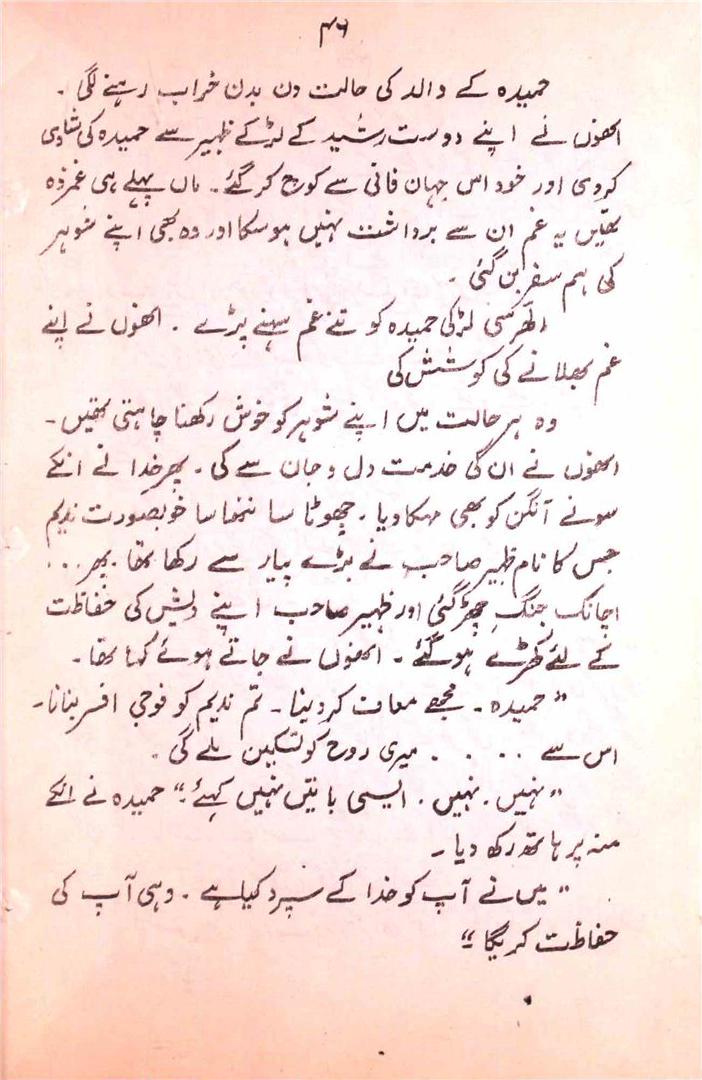 ۴۶
حمیدہ کے والد کی حالت دن بدن خراب رہنے لگی ۔
انھوں نے اپنے دوست رشید کے لڑکے ظہیر سے حمیدہ کی شادی
کردی اور خود اس جہان فانی سے کوچ کر گئے ۔ ماں پہلے ہی غمزدہ
تھیں یہ غم ان سے برداشت نہیں ہوسکا اور وہ بھی اپنے شوہر
کی ہم سفر بن گئی ۔
الھڑ سی لڑکی حمیدہ کو تنے غم سہنے پڑے ۔ انھوں نے اپنے
غم بھلانے کی کوشش کی
وہ ہر حالت میں اپنے شوہر کو خوش رکھنا چاہتی تھیں ۔
انھوں نے ان کی خدمت دل و جان سے کی ۔ پھر خدا نے انکے
سونے آنگن کو بھی مہکا دیا ۔ چھوٹا سا ننھا سا خوبصورت ندیم
جس کا نام ظہیر صاحب نے بڑے پیار سے رکھا تھا ۔ پھر ...
اچانک جنگ چھڑ گئی اور ظہیر صاحب اپنے دیش کی حفاظت
کے لئے کھڑے ہوگئے ۔ انھوں نے جاتے ہوئے کہا تھا ۔
” حمیدہ ۔ مجھے معاف کر دینا ۔ تم ندیم کو فوجی افسر بنانا ۔
اس سے .... میری روح کو تسکین ملے گی ۔
” نہیں ۔ نہیں ۔ ایسی باتیں نہیں کہئے ۔“ حمیدہ نے انکے
منہ پر ہاتھ رکھ دیا ۔
” میں نے آپ کو خدا کے سپرد کیا ہے ۔ وہی آپ کی
حفاظت کریگا ۔“